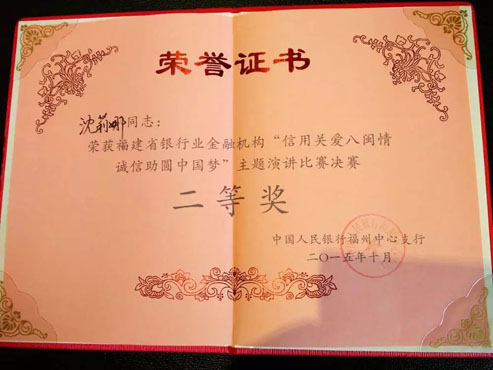 荣誉证书
沈莉娜同志：
荣获福建省银行业金融机构“信用关爱八闽情
诚信助圆中国梦”主题演讲比赛决赛
二等奖
中国人民银行福州中心支行
二〇一五年十月